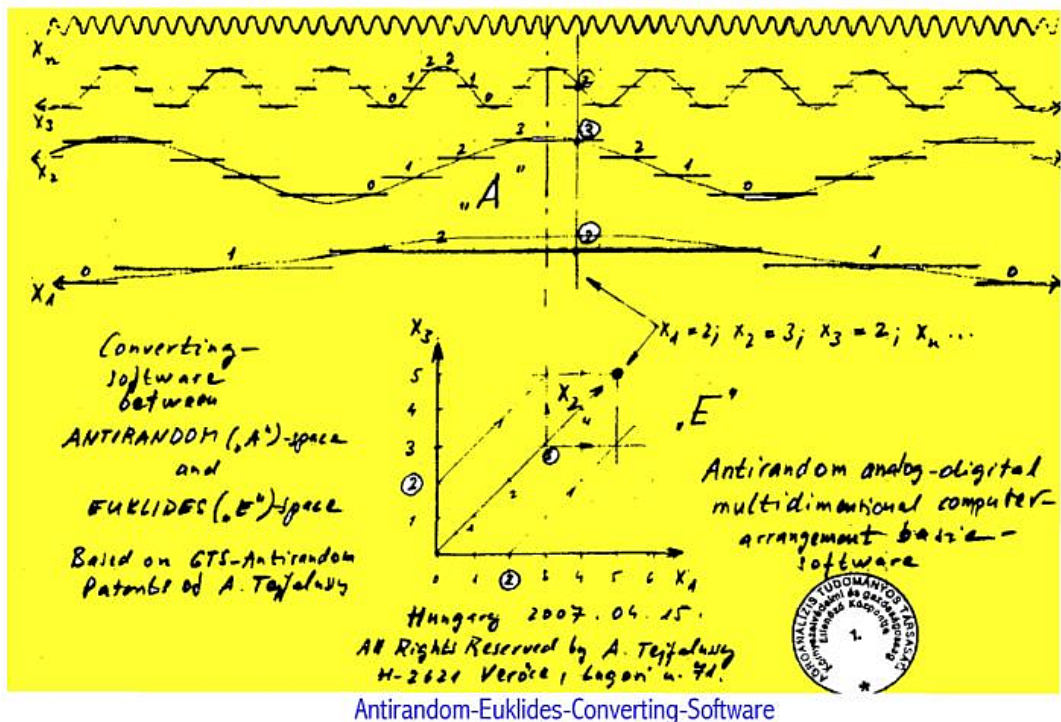 Xn
2 2
1 1
0 0
2
X3
3 3
2 2
X2
1 1
0 0
„A"
2 2
1 1
0 0
X1
X1 = 2; X2 = 3; X3 = 2; Xn ...
Converting-
software
between
ANTIRANDOM („A")-space
and
EUKLIDES („E")-space
Based on GTS-Antirandom
Patents of A. Tejfalussy
X3
5
4
3
2
1
X2
4
3
2
1
1
0 1 2 3 4 5 6 X1
„E"
Antirandom analog-digital
multidimensional computer-
arrangement basic-
software
Hungary 2007.04.15.
All Rights Reserved by A. Tejfalussy
H-2621 Verőce, Lugosi u. 71.
AGROANALÍZIS TUDOMÁNYOS TÁRSASÁG
Környezetvédelmi és gazdaságossági
Ellenőrző Központja
1.
*
Antirandom-Euklides-Converting-Software